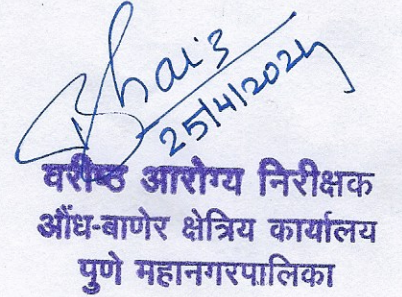 25/4/2024
वरीष्ठ आरोग्य निरीक्षक
औंध-बाणेर क्षेत्रिय कार्यालय
पुणे महानगरपालिका